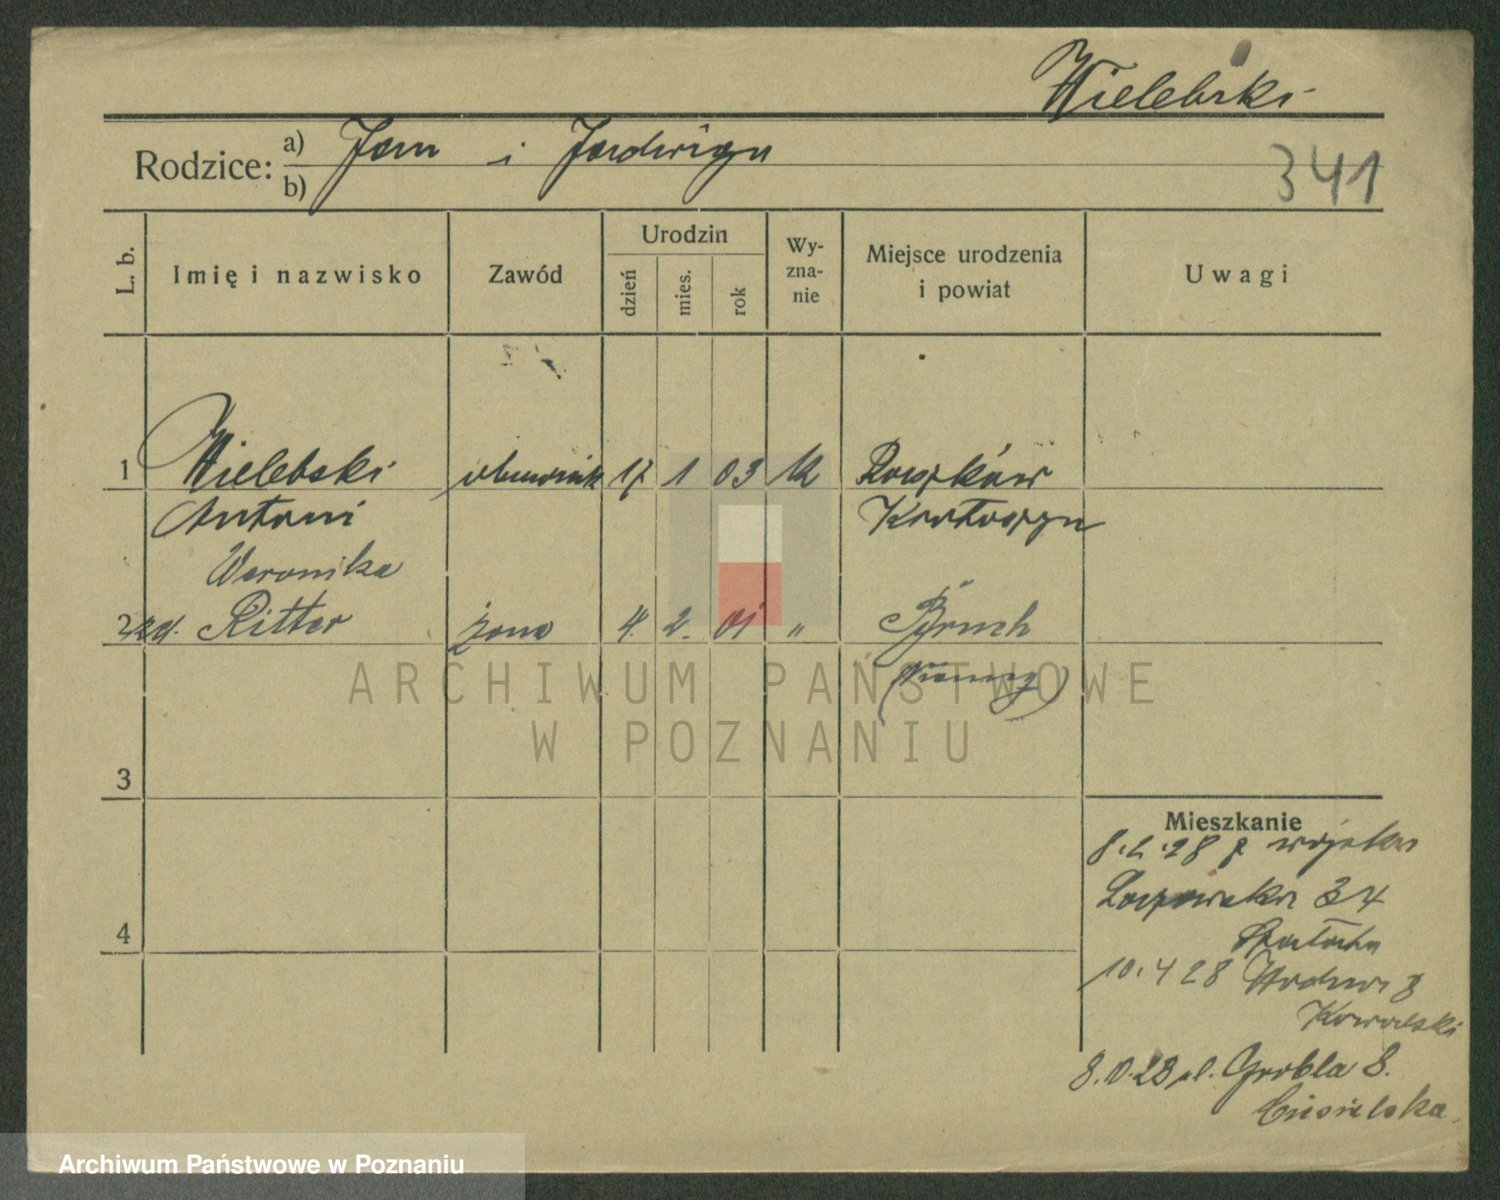 Wielebski
Rodzice: a) Jan i Jadwiga
b)
341
L. b.
Imię i nazwisko
Zawód
Urodzin
dzień
mies.
rok
Wy-
zna-
nie
Miejsce urodzenia
i powiat
Uwagi
1 Wielebski obuwnik 17 1 03 kat Roszków
Antoni Krotoszyn
Weronika
2 zd. Ritter żona 4. 2. 01 " Bruch
(Niemcy)
3
4
Mieszkanie
8.2.28 z wojska
34
10.4 28 Wodna 8
Kowalski
8.0.28 ul. Grobla 8.
ARCHIWUM PAŃSTWOWE
W POZNANIU
Archiwum Państwowe w Poznaniu